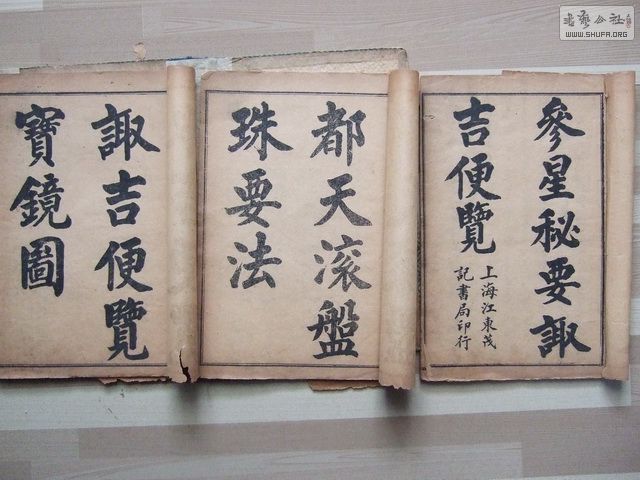 參星秘要諏
吉便覽
上海江東茂
記書局印行
都天滾盤
珠要法
諏吉便覽
寶鏡圖
書藝公社
WWW.SHUFA.ORG